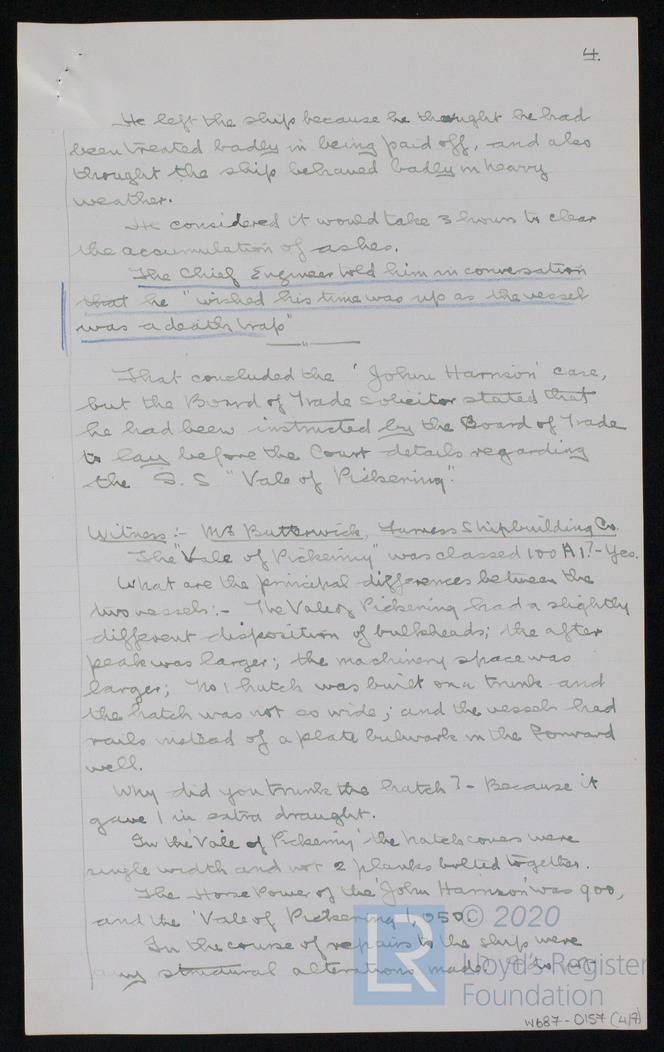 4.
He left the ship because he thought he had
been treated badly in being paid off, and also
thought the ship behaved badly in heavy
weather.
He considered it would take 3 hours to clear
the accumulation of ashes.
The Chief Engineer told him in conversation
that he "wished his time was up as the vessel
was a death trap"
That concluded the 'John Harrison' case,
but the Board of Trade solicitor stated that
he had been instructed by the Board of Trade
to lay before the Court details regarding
the S.S "Vale of Pickering".
Witness :- Mr Butterwick, Furness Shipbuilding Co.
The "Vale of Pickering" was classed 100 A1? - Yes.
What are the principal differences between the
two vessels :- The Vale of Pickering had a slightly
different disposition of bulkheads; the after
peak was larger; the machinery space was
larger; No 1 hatch was built on a trunk and
the hatch was not so wide; and the vessel had
rails instead of a plate bulwark in the forward
well.
Why did you trunk the hatch? - Because it
gave 1 in extra draught.
In the 'Vale of Pickering' the hatch covers were
single width and not 2 planks bolted together.
The Horse Power of the 'John Harrison' was 900,
and the 'Vale of Pickering' 1,050.
In the course of repairs to the ship were
any structural alterations made.
LR
© 2020
Lloyd's Register
Foundation
W687-0157 (4/9)